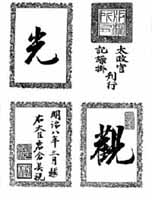 太政官
記録掛
刊行
觀
光
明治八年
右大臣岩倉具視